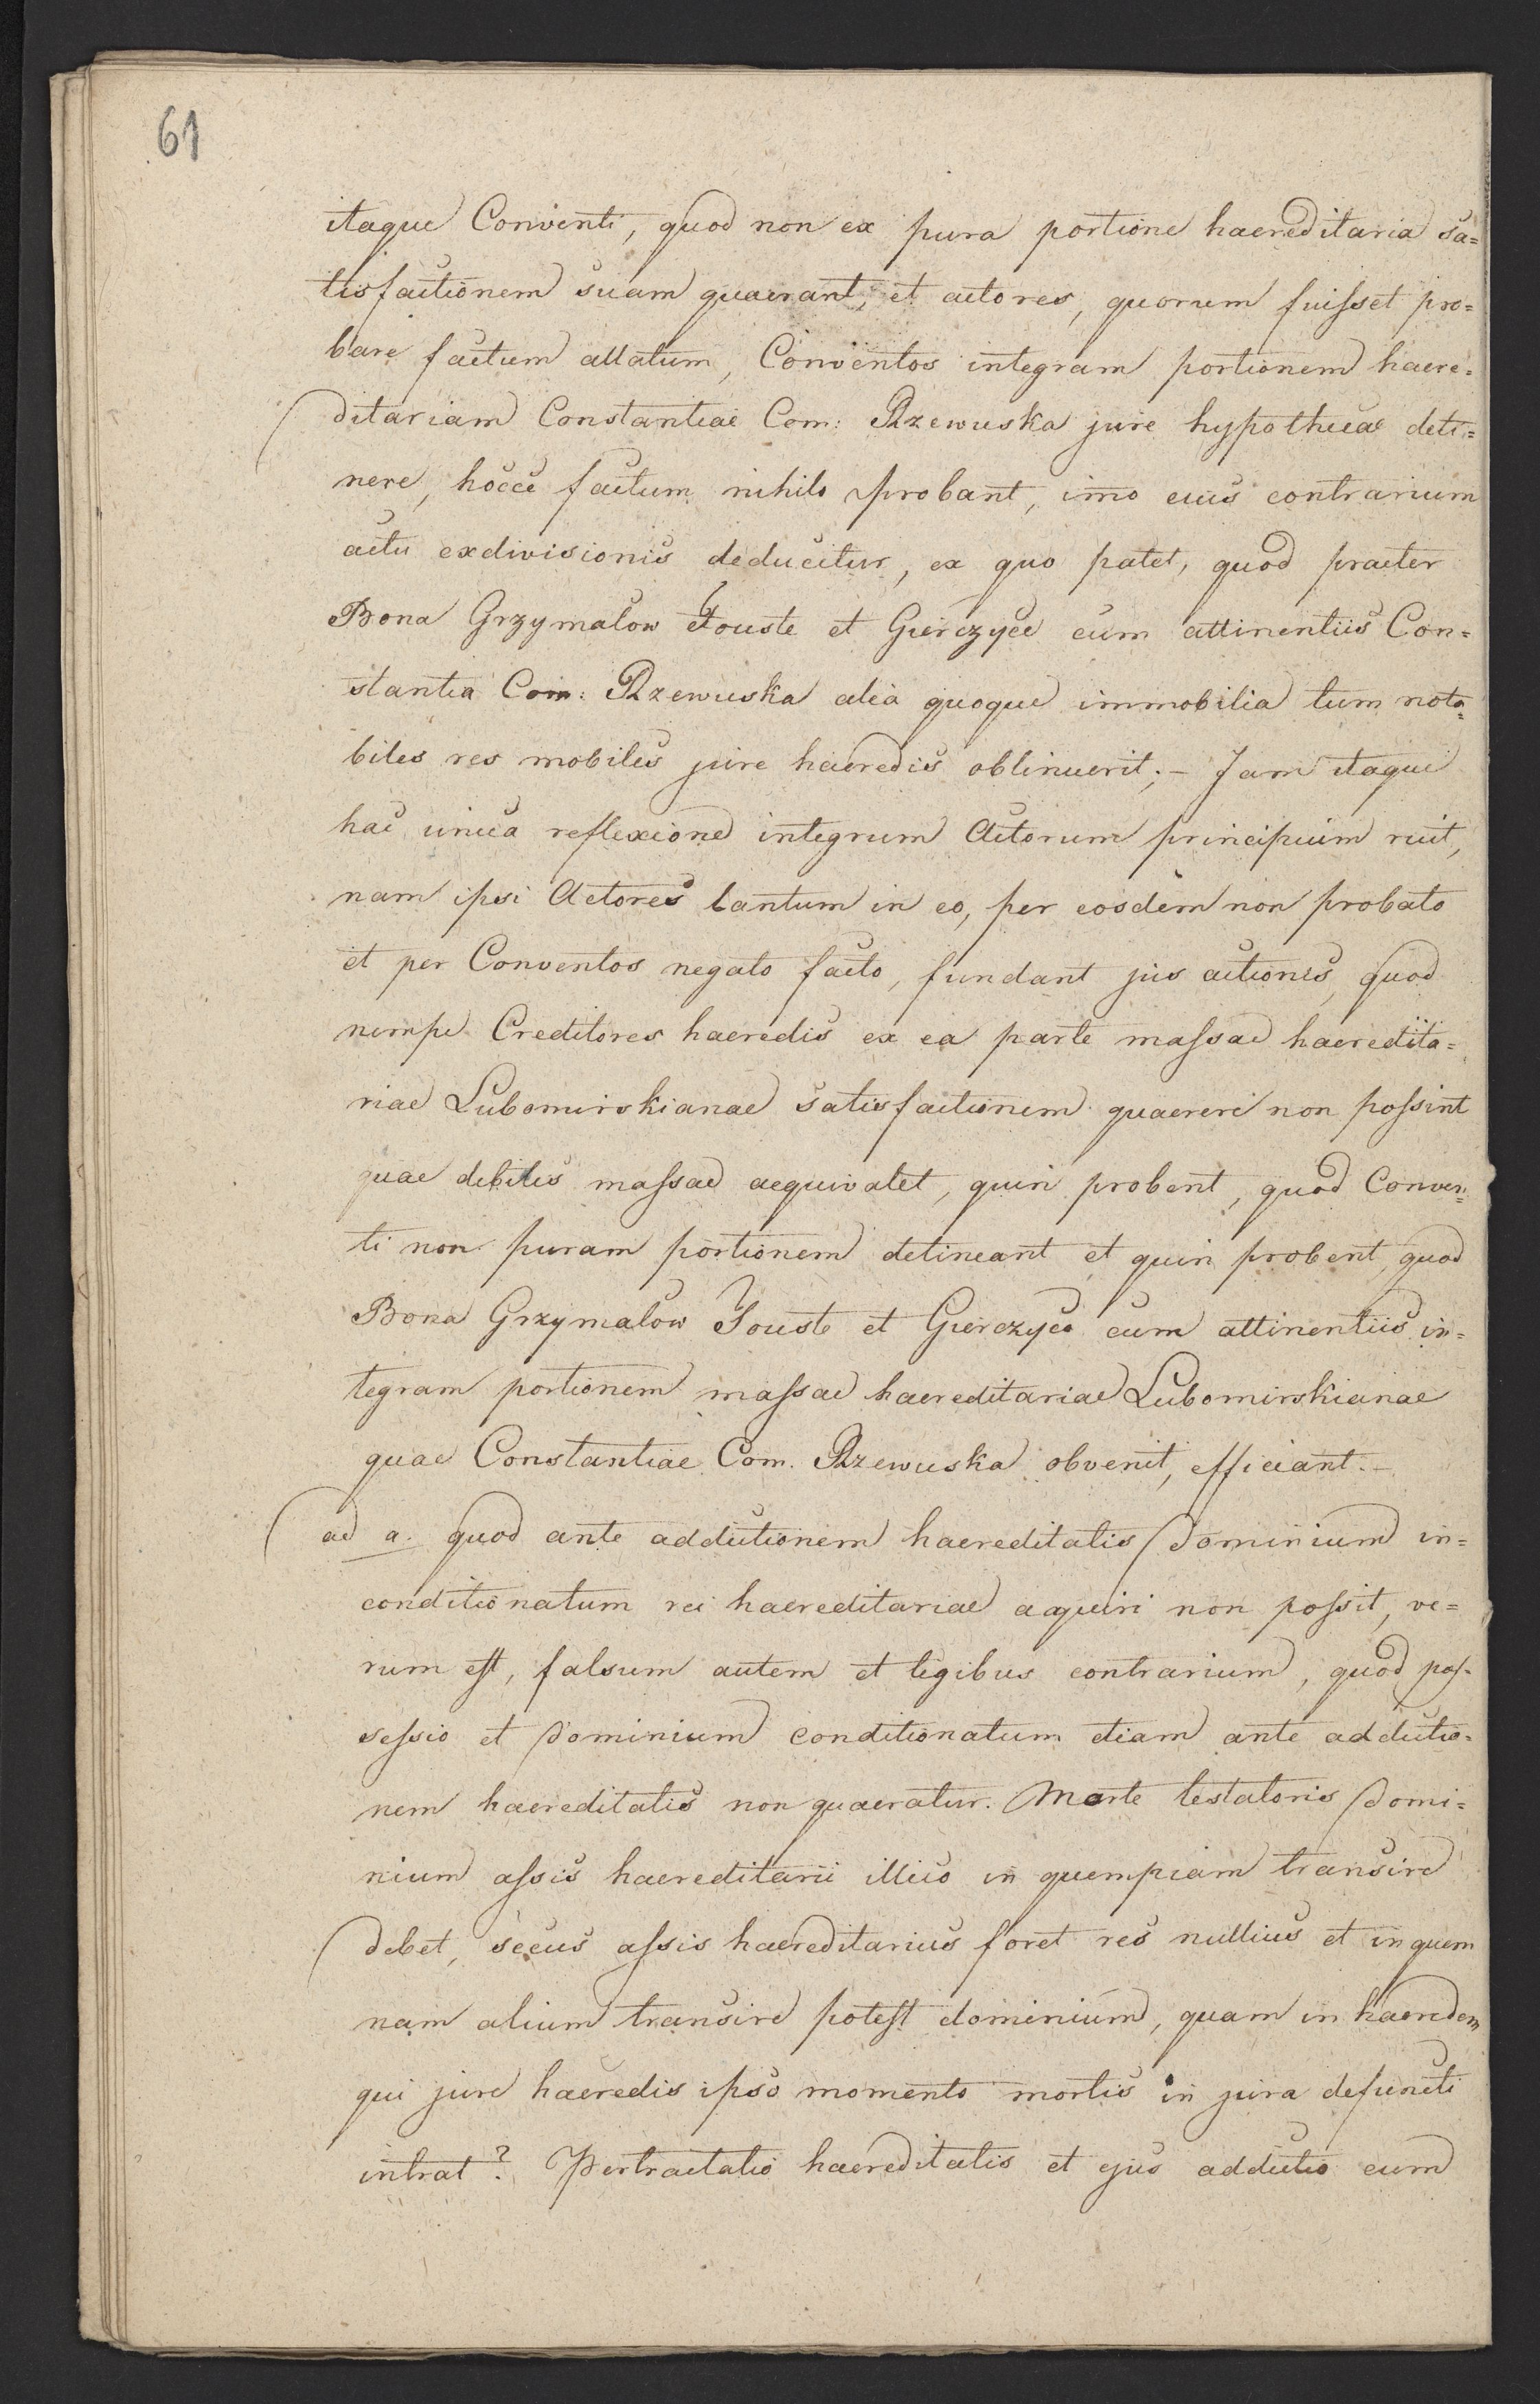 61
itaque Conventi, quod non ex pura portione haereditaria sa=
tisfactionem suam quaerant, et actores, quorum fuisset pro=
bare factum allatum, Conventos integram portionem haere=
ditariam Constantiae Com: Rzewuska jure hypothecae deti=
nere, hocce factum nihilo probant, imo eius contrarium
actu exdivisionis deducitur, ex quo patet, quod praeter
Bona Grzymałow Touste et Gierczyce cum attinentiis Con=
stantia Com: Rzewuska alia quoque immobilia tum nota=
biles res mobiles jure haeredis obtinuerit; – Jam itaque
hac unica reflexione integrum Actorum principium ruit,
nam ipsi Actores tantum in eo, per eosdem non probato
et per Conventos negato facto, fundant jus actionis, quod
nempe Creditores haeredis ex ea parte massae haeredita=
riae Lubomirskianae satisfactionem quaerere non possint
quae debitis massae aequivalet, quin probent, quod Conven=
ti non puram portionem detineant et quin probent, quod
Bona Grzymałow Touste et Gierczyce cum attinentiis in=
tegram portionem massae haereditariae Lubomirskianae
quae Constantiae Com. Rzewuska obvenit, efficiant. –
ad a. quod ante addictionem haereditatis Dominium in=
conditionatum rei haereditariae aquiri non possit, ve=
rum est, falsum autem et legibus contrarium, quod pos=
sessio et Dominium conditionatum etiam ante addictio=
nem haereditatis non quaeratur. Morte testatoris Domi=
nium assis haereditarii illico in quempiam transire
debet, secus assis haereditarius foret res nullius et in quem
nam alium transire potest dominium, quam in haeredem
qui jure haeredis ipso momento mortis in jura defuncti
intrat? Pertractatio haereditatis et ejus addictio cum